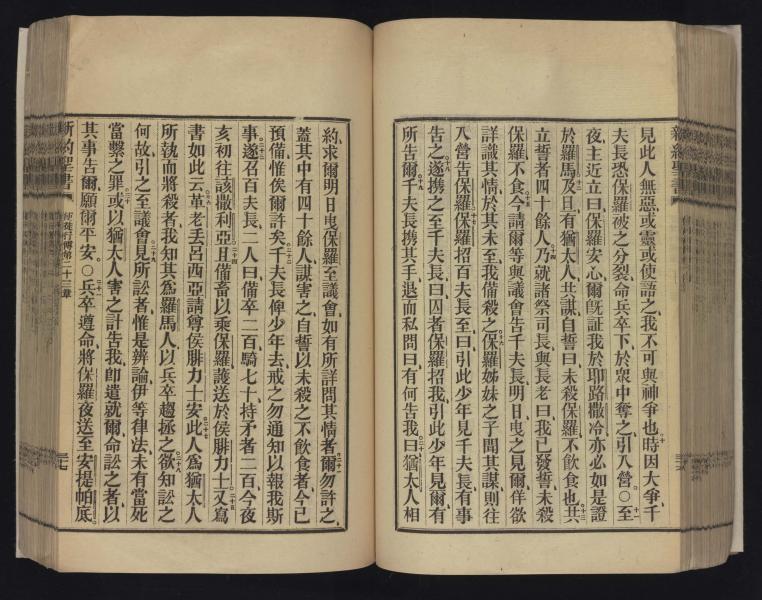 見此人無惡或靈或使語之我不可與神爭也時因大爭千
夫長恐保羅被之分裂命兵卒下於衆中奪之引入營○至
夜主近立曰保羅安心爾旣証我於耶路撒冷亦必如是證
於羅馬及旦有猶太人共謀自誓曰未殺保羅不飲食也共
立誓者四十餘人乃就諸祭司長與長老曰我已發誓未殺
保羅不食今請爾等與議會告千夫長明日曳之見爾佯欲
詳識其情於其未至我備殺之保羅姊妹之子聞其謀則往
入營告保羅保羅招百夫長至曰引此少年見千夫長有事
告之遂携之至千夫長曰囚者保羅招我引此少年見爾有
所告爾千夫長携其手退而私問曰有何告我曰猶太人相
約求爾明日曳保羅至議會如有所詳問其情者爾勿許之
蓋其中有四十餘人謀害之自誓以未殺之不飲食者今已
預備惟俟爾許矣千夫長俾少年去戒之勿通知以報我斯
事遂召百夫長二人曰備卒二百騎七十持矛者二百今夜
亥初往該撒利亞且備畜以乘保羅護送於侯腓力士又寫
書如此云革老丟呂西亞請尊侯腓力士安此人爲猶太人
所執而將殺者我知其爲羅馬人以兵卒趨拯之欲知訟之
何故引之至議會見所訟者惟是辨論伊等律法未有當死
當繫之罪或以猶太人害之計告我卽遣就爾命訟之者以
其事告爾願爾平安○兵卒遵命將保羅夜送至安提帕底
新約聖書
使徒行傳第二十三章